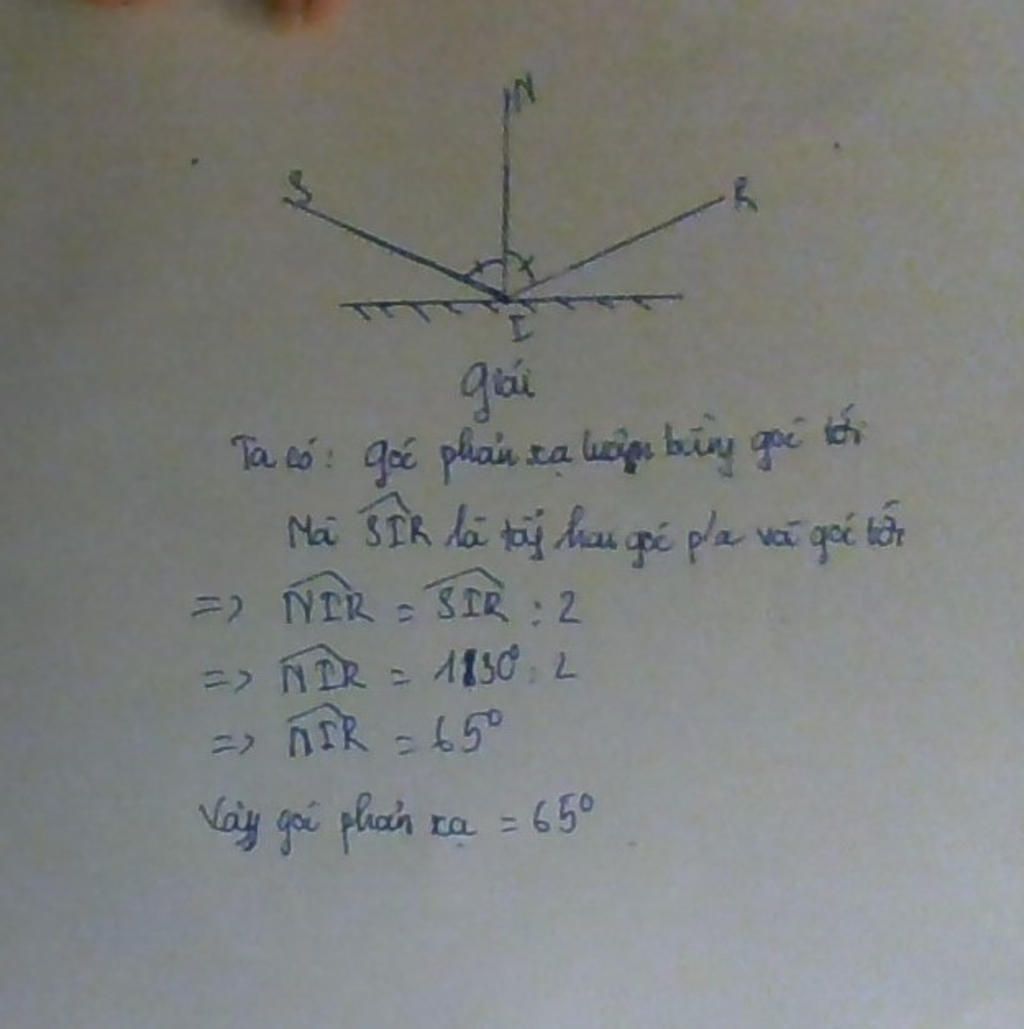 N
S
R
I
Giải
Ta có: góc phản xạ luôn bằng góc tới
Mà SIR là tổng hai góc p/a và góc tới
=> NIR = SIR : 2
=> NIR = 130° : 2
=> NIR = 65°
Vậy góc phản xạ = 65°